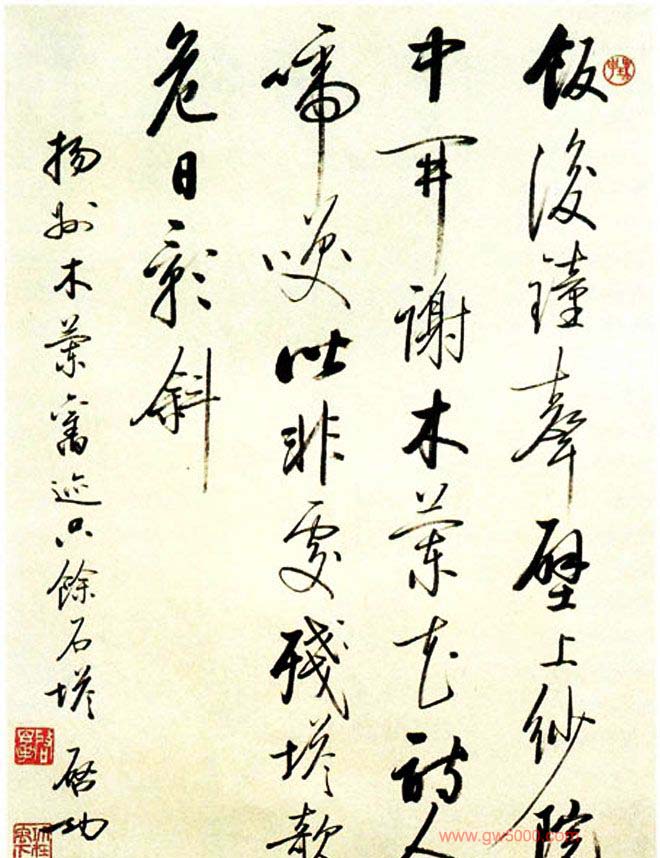 飯後鐘聲壁上紗院
中開謝木蘭花詩人
啼咲皆非處殘塔欹
危日影斜
揚州木蘭舊迹只餘石塔 啓功
www.gw5000.com